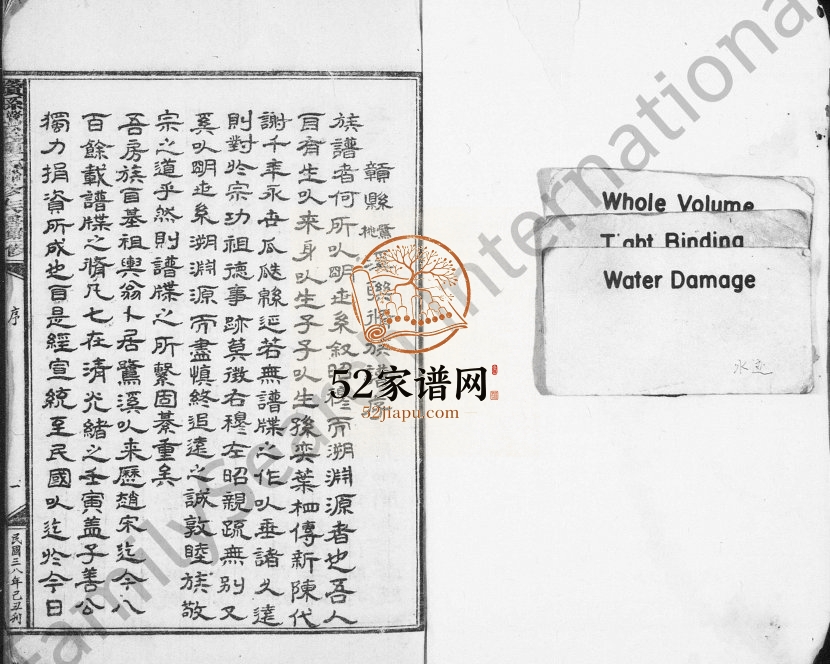 贛縣
族譜者何所以明世系敘昭穆而溯淵源者也吾人
自有生以來身以生子子以生孫奕葉相傳新陳代
謝千年永世瓜瓞綿延若無譜牒之作以垂諸久遠
則對於宗功祖德事跡莫徵右穆左昭親疏無别又
奚以明世系溯淵源而盡慎終追遠之誠敦睦族敬
宗之道乎然則譜牒之所繫固綦重矣
吾房族自基祖輿翁卜居鷺溪以來歷趙宋迄今八
百餘載譜牒之脩凡七在清光緒之壬寅盖子善公
獨力捐資所成也自是經宣統至民國以迄於今日
序
一
民國三八年己丑刊
Whole Volume
Tight Binding
Water Damage
水迹
52家谱网
52jiapu.com
FamilySearch International